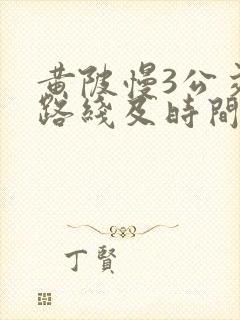 黄陂慢3公交
路綫及時間
丁賢